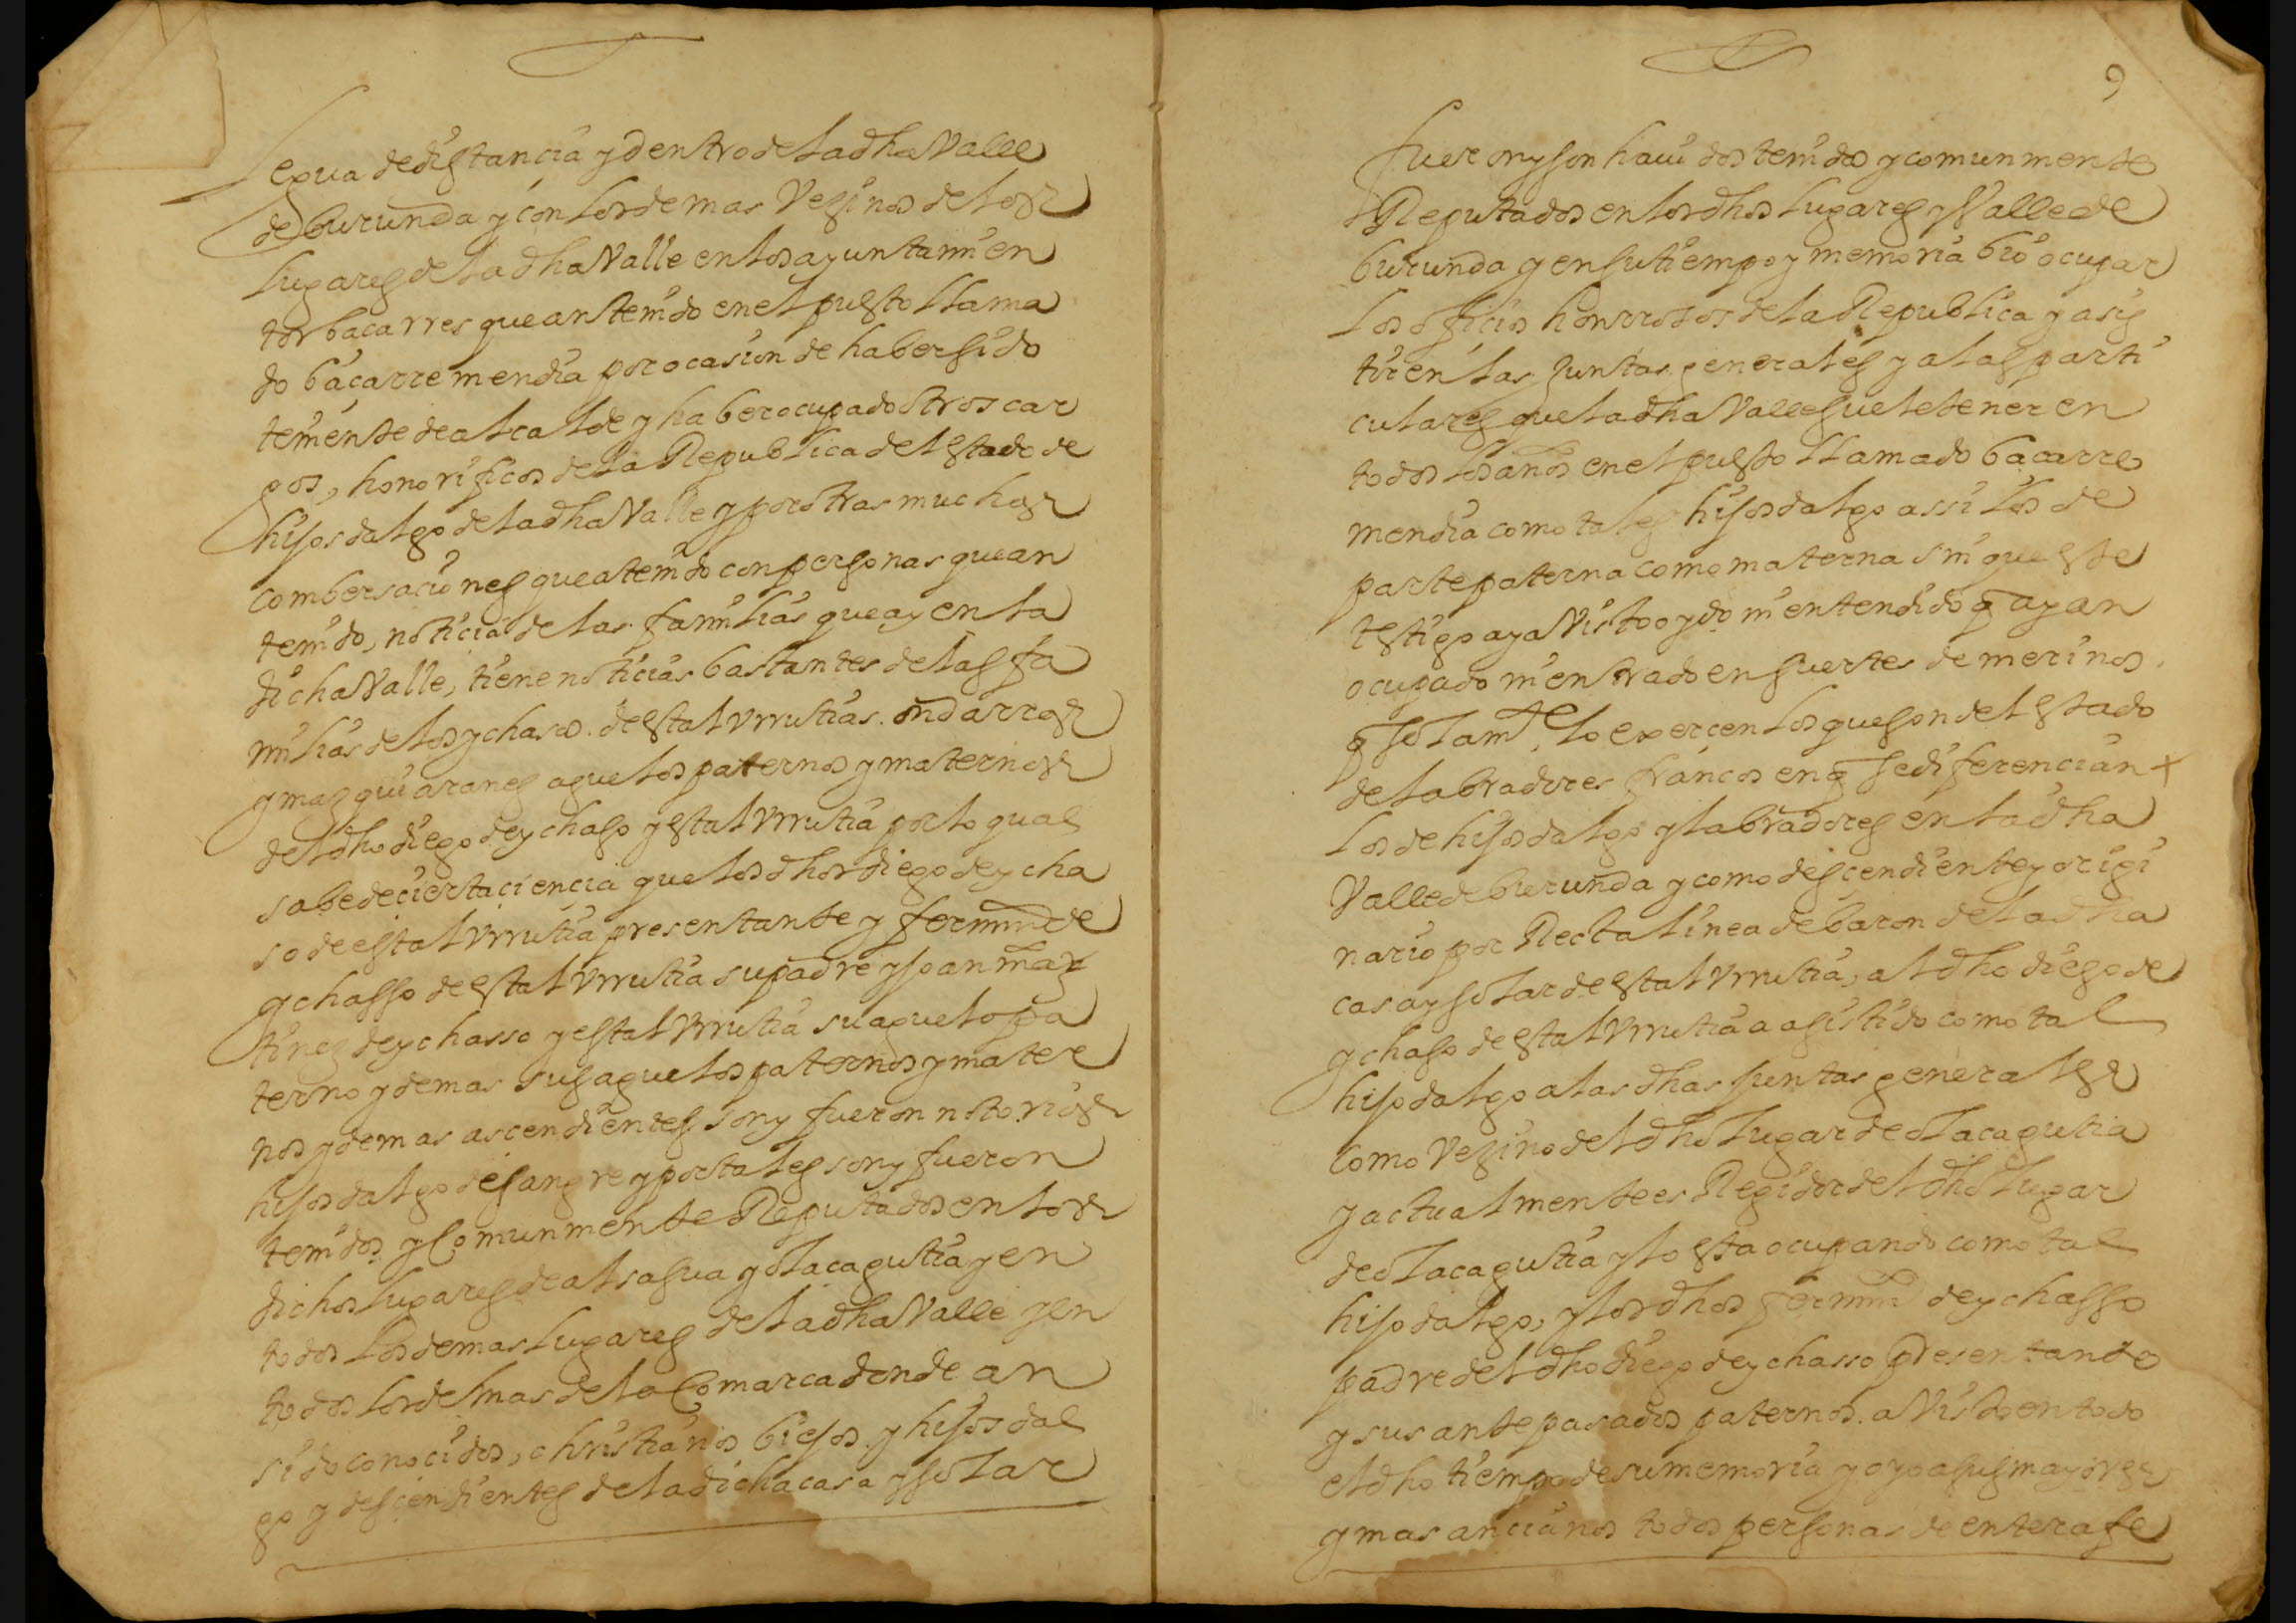 legua de distancia y dentro de la dha Valle
de burunda y con los demas Vezinos de los
lugares de la dha Valle en los ayuntamien
tos bacarres que an tenido en el puesto llama
do bacarremendia por ocasion de haber sido
teniente de alcalde y haber ocupado otros car
gos, honorificos de la Republica del estado de
hijosdalgo de la dha Valle y por otras muchas
combersaciones que a tenido con personas que an
tenido, noticia de las familias que ay en la
dicha Valle, tiene noticias bastantes de las fa
milias de los ychasos. de estal Vrrutias. ondarras
y mazquiaranes aguelos paternos y maternos
del dho diego de ychasso y estal Vrrutia por lo qual
sabe de cierta ciencia que los dhos diego de ycha
so de estal Vrrutia presentante y fermin de
ychasso de estal Vrrutia su padre y joan mar
tinez de ychasso y estal Vrrutia su aguelo pa
terno y demas sus aguelos paternos y mater
nos y demas ascendientes son y fueron notorios
hijosdalgo de sangre y por tales son y fueron
tenidos y Comunmente Reputados en los
dichos lugares de alsasua y olacagutia y en
todos los demas lugares de la dha Valle y en
todos los demas de la Comarca donde an
sido conocidos, christianos biejos y hijosdal
go y descendientes de la dicha casa y solar
9
fueron y son hauidos tenidos y comunmente
Reputados en los dhos lugares y Valle de
burunda y en su tiempo y memoria bio ocupar
los oficios honrrosos de la Republica y asis
tir en las juntas generales y a las parti
culares que la dha Valle suele tener en
todos los años en el puesto llamado bacarre
mendia como tales hijosdalgo assi los de
parte paterna como materna sin que este
testigo aya Visto oydo ni entendido q ayan
ocupado ni entrado en suertes de merinos
q solamte. lo exercen los que son del estado
de labradores francos en q se diferencian +
los de hijosdalgo y labradores en la dha
Valle de burunda y como descendiente y origi
nario por Recta linea de baron de la dha
casa y solar de estal Vrrutia, al dho diego de
ychaso de estal Vrrutia a asistido como tal
hijodalgo a las dhas juntas generales
como Vezino del dho lugar de olacagutia
y actualmente es Regidor del dho lugar
de olacagutia y lo esta ocupando como tal
hijodalgo, y los dhos fermin de ychasso
padre del dho diego de ychasso presentante
y sus antepasados paternos. a Visto en todo
el dho tiempo de su memoria y oyo a sus mayores
y mas ancianos todos personas de entera fe